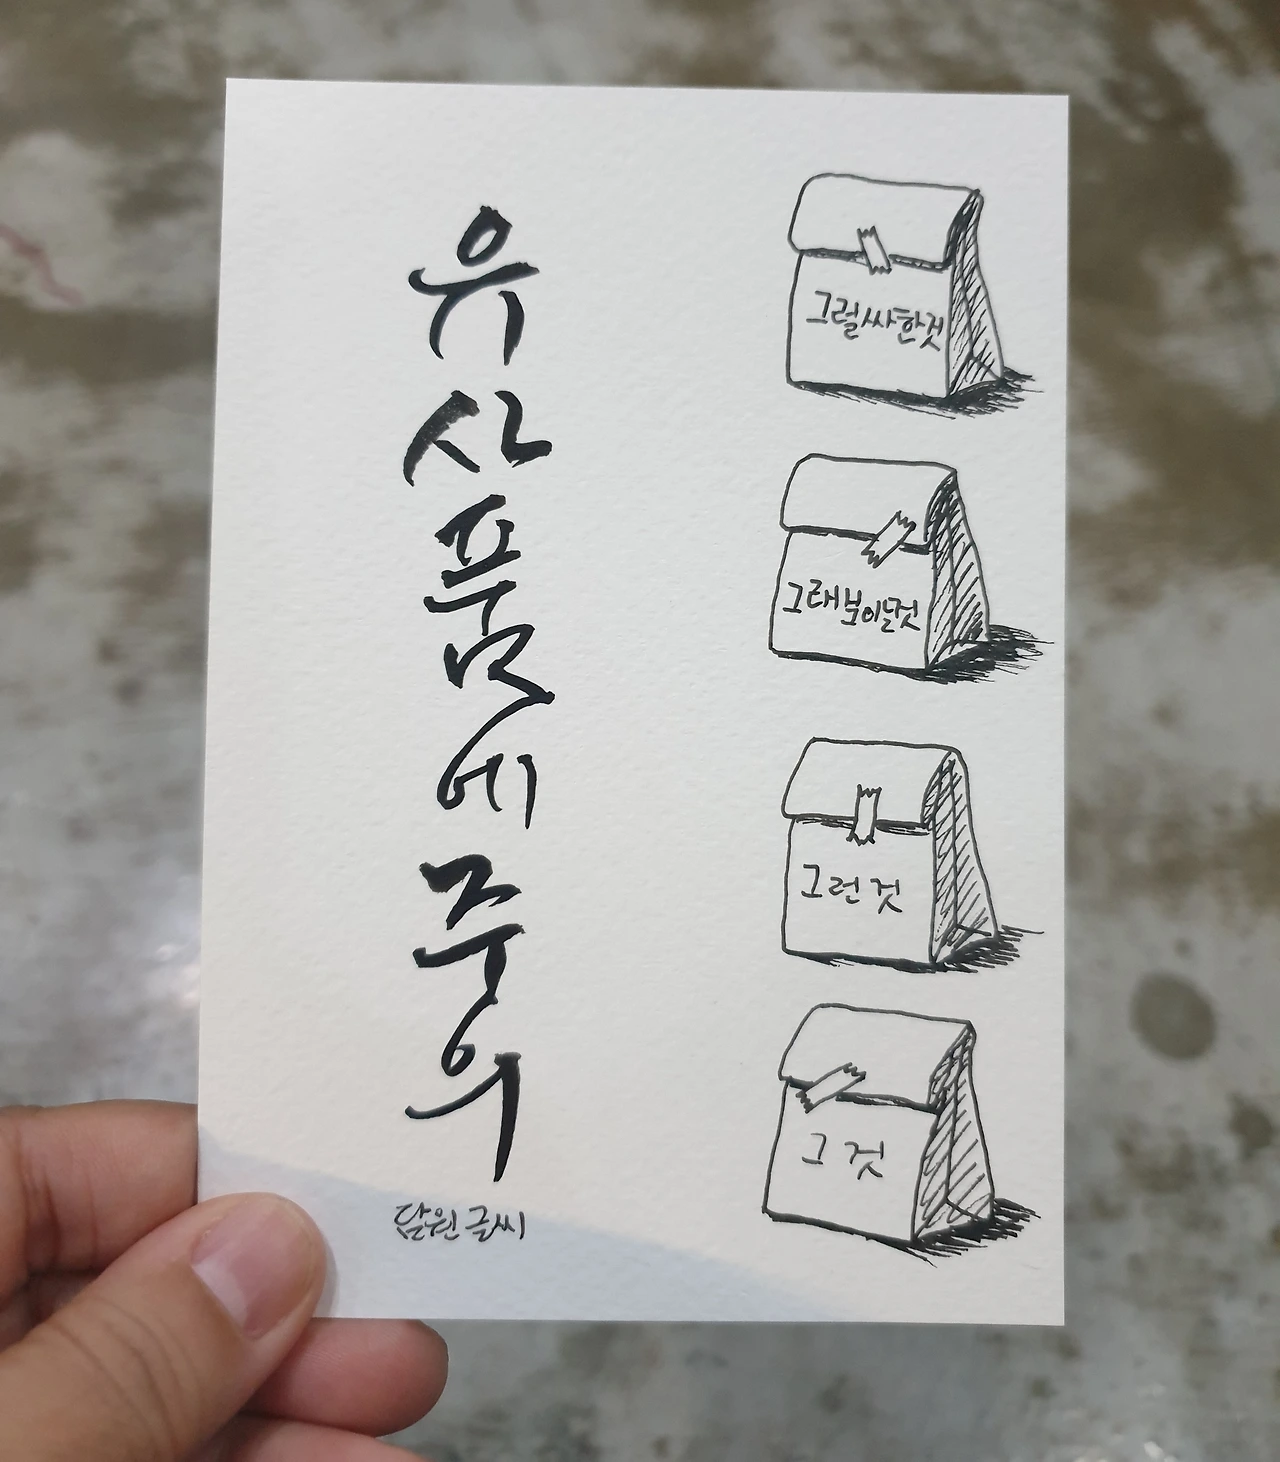 유사품에주의
달원글씨
그럴싸한것
그래보이는것
그런것
그것